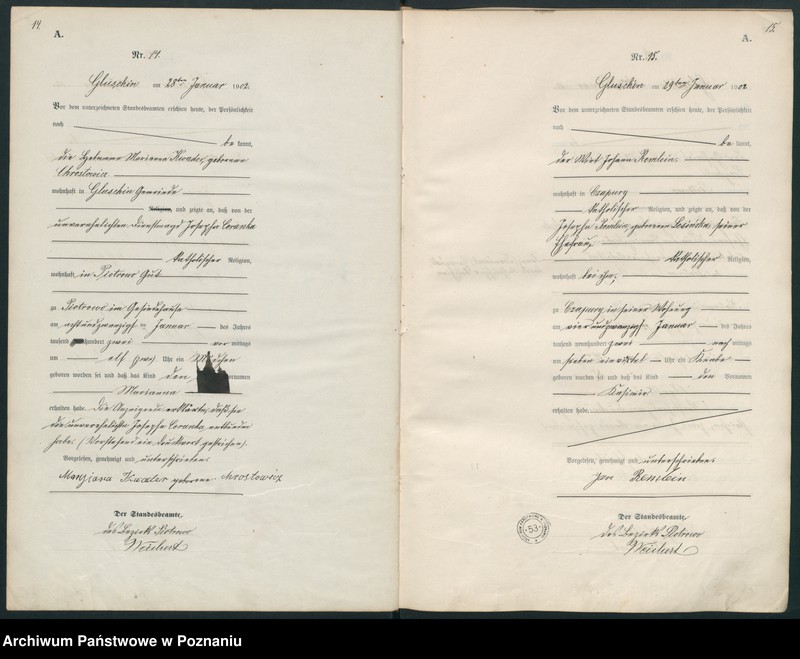 14.
A.
Nr. 14.
Gluschin am 28ten Januar 1902.
Vor dem unterzeichneten Standesbeamten erschien heute, der Persönlichkeit
nach
be kannt,
die Hebamme Marianna Kwader, geborene
Chrostowicz
wohnhaft in Gluschin Gemeinde
Religion, und zeigte an, daß von der
unverehelichten Dienstmagd Josepha Coranka
katholischer Religion,
wohnhaft in Piotrowo Gut
zu Piotrowo im Gesindehause
am achtundzwanzigsten Januar des Jahres
tausend hundert zwei vor mittags
um elf Uhr ein Mädchen
geboren worden sei und daß das Kind den Vornamen
Marianna
erhalten habe. Die Anzeigende erklärte, daß sie
die unverehelichte Josepha Coranka entbunden
habe. (Vorstehend ein Druckwort gestrichen).
Vorgelesen, genehmigt und unterschrieben
Maryiana Kwader geborene Chrostowicz
Der Standesbeamte.
des Bezirk Piotrowo
Weichert
15.
A.
Nr. 15.
Gluschin am 29ten Januar 1902
Vor dem unterzeichneten Standesbeamten erschien heute, der Persönlichkeit
nach
be kannt,
der Wirt Johann Remlein
wohnhaft in Czapury
katholischer Religion, und zeigte an, daß von der
Josepha Remlein, geborenen seiner
Ehefrau,
katholischer Religion,
wohnhaft bei ihm,
zu Czapury in seiner Wohnung
am vierundzwanzigsten Januar des Jahres
tausend neunhundert zwei nach mittags
um sieben einviertel Uhr ein Knabe
geboren worden sei und daß das Kind den Vornamen
Kasimir
erhalten habe.
Vorgelesen, genehmigt und unterschrieben
Jan Remlein
Der Standesbeamte.
des Bezirk Piotrowo
Weichert
53
Archiwum Państwowe w Poznaniu